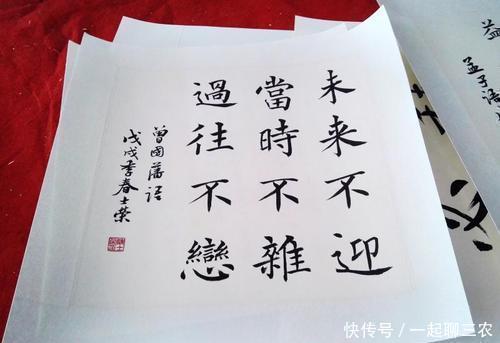 未来不迎
當時不雜
過往不戀
曾國藩语
戊戌季春士荣
孟子语
益
快传号／一起聊三农